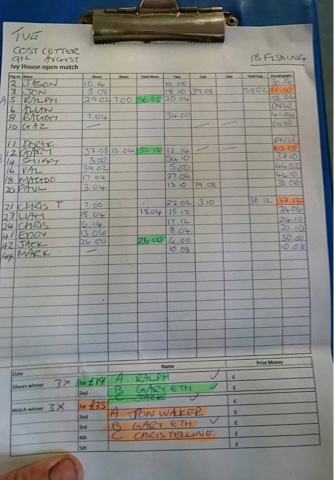 TUE
COST CUTTER
9th AUGUST
18 FISHING
Ivy House open match
Peg no Name Silvers Silvers Total Silvers Carp Carp Carp Total Carp Overall weight
2 JASON 10.14
3 JON 3.08 18.10 39.08 61.10
5 RALPH 29.02 7.00 36.02 20.04
6 ALAN DNW
8 BAGGY 7.04 34.00
10 GAZ — — DNW
11 DEREK DNW
GARY 37.03 13.04 50.10 12.14 — — 63.10
SHIFFY 3.00 34.10 37.10
16 VAL 39.02 5.00 44.02
MAGOO 17.04 27.06 44.10
20 PAUL 3.04 13.10 19.08
21 CHRIS T 7.00 27.02 3.10 30.12 37.12
LIAM 18.04 18.04 15.12
CHRIS 6.14 17.12 24.10
EDDY 13.06 8.04 21.10
42 JACK 26.00 26.00 4.00 30.00
MARK — 10.08 10.08
Date
Name Prize Money
Silvers winner 3X 1st £19 A RALPH £
2nd B GARY ETH £
C JACK
Match winner 3X 1st £35 £
2nd A JON WAKER £
3rd B GARY ETH £
4th C CHRIS TELLING £
5th £